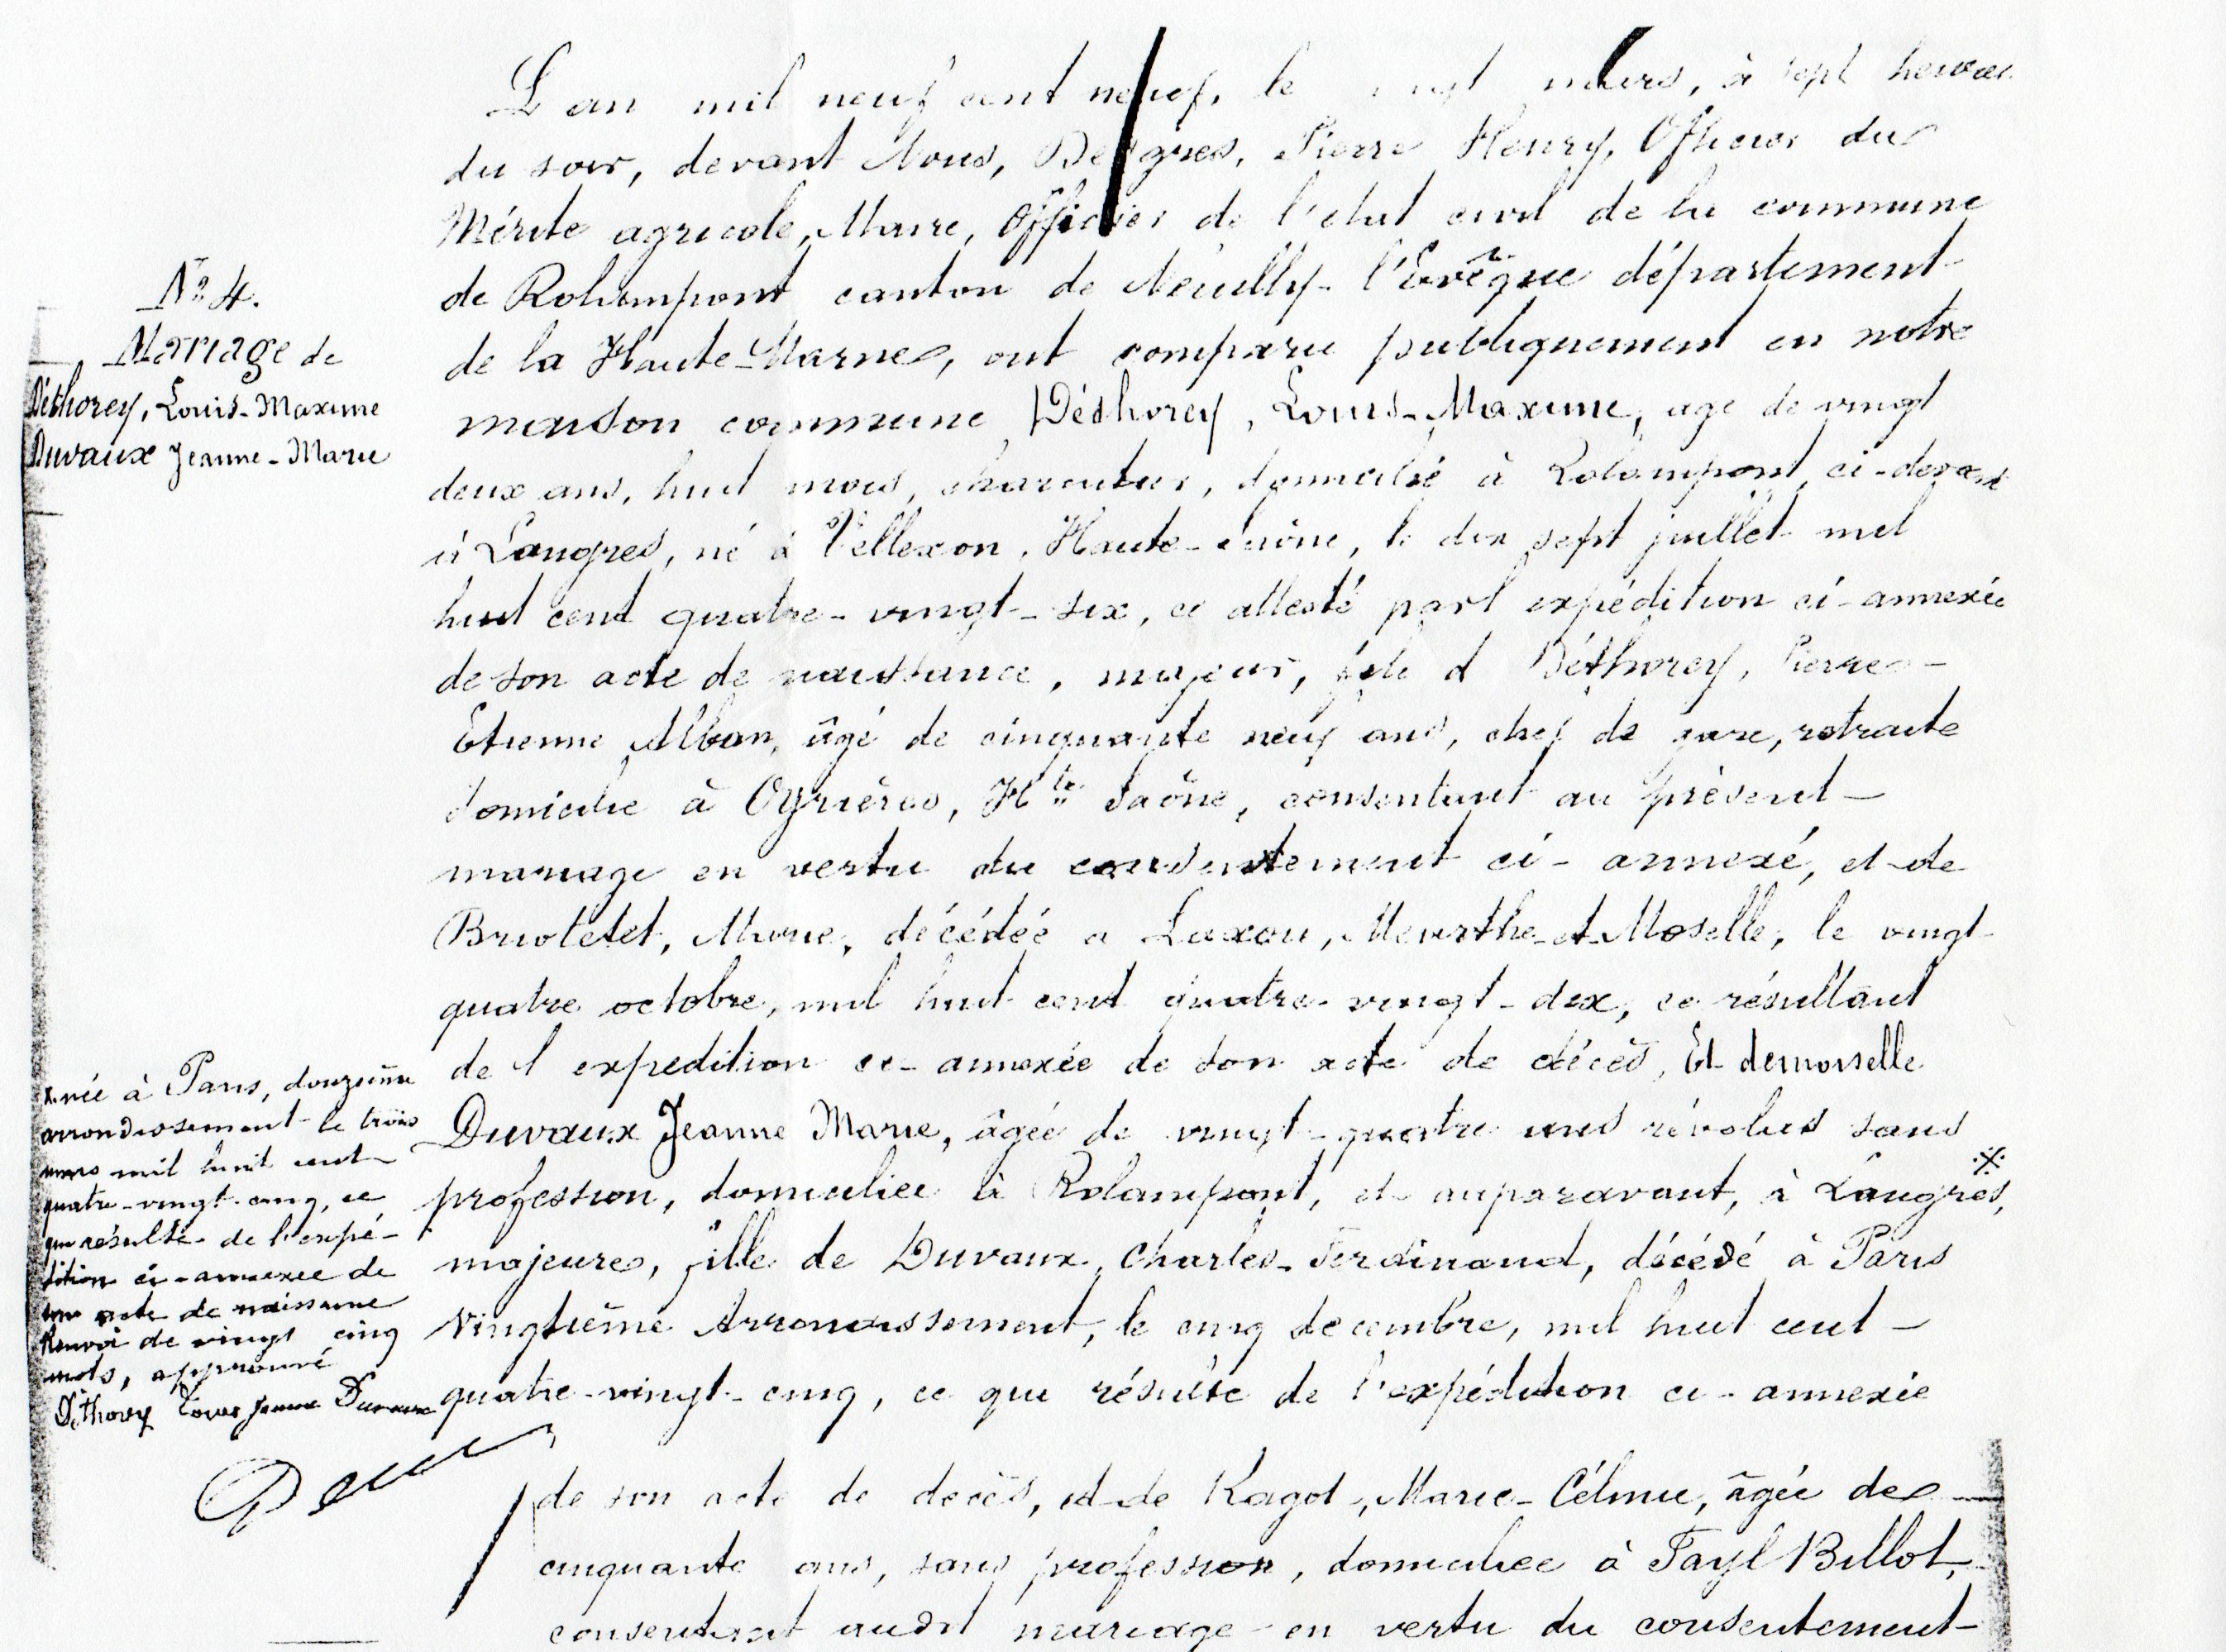 L'an mil neuf cent neuf, le vingt mars, à sept heures
du soir, devant Nous, Pierre Henry, Officier du
Mérite agricole, Maire, Officier de l'état civil de la commune
de Rolampont canton de Neuilly-l'Evêque département
de la Haute-Marne, ont comparu publiquement en notre
maison commune Déthorey, Louis-Maxime, agé de vingt
deux ans, huit mois, charcutier, domicilié à Rolampont, ci-devant
à Langres, né à Vellexon, Haute-Saône, le dix sept juillet mil
huit cent quatre-vingt-six, ce attesté par l'expédition ci-annexée
de son acte de naissance, majeur, fils d Déthorey, Pierre-
Etienne Alban, âgé de cinquante neuf ans, chef de gare, retraité
domicilié à Oyrières, Hte Saône, consentant au présent-
mariage en vertu du consentement ci-annexé, et de
Briotetet, Marie, décédée a Laxou, Meurthe-et-Moselle, le vingt
quatre octobre, mil huit cent quatre-vingt-dix, ce résultant
de l'expedition ci-annexée de son acte de décès, Et demoiselle
Duvaux Jeanne Marie, âgée de vingt-quatre ans révolus sans
profession, domiciliée à Rolampont, et auparavant, à Langres, ※
majeure, fille de Duvaux, Charles-Ferdinand, décédé à Paris
vingtième Arrondissement, le cinq decembre, mil huit cent-
quatre-vingt-cinq, ce qui résulte de l'expédition ci-annexée
de son acte de décès, et de Ragot, Marie-Célinie, âgée de
cinquante ans, sans profession, domiciliée à Fayl Billot,
consentant audit mariage en vertu du consentement-
No 4.
Mariage de
Déthorey, Louis-Maxime
Duvaux Jeanne-Marie
x née à Paris, douzième
arrondissement le trois
mars mil huit cent
quatre-vingt-cinq, ce
qui résulte de l'expé-
dition ci-annexée de
son acte de naissance
Renvoi de vingt cinq
mots, approuvé
Déthorey Louis Jeanne Duvaux